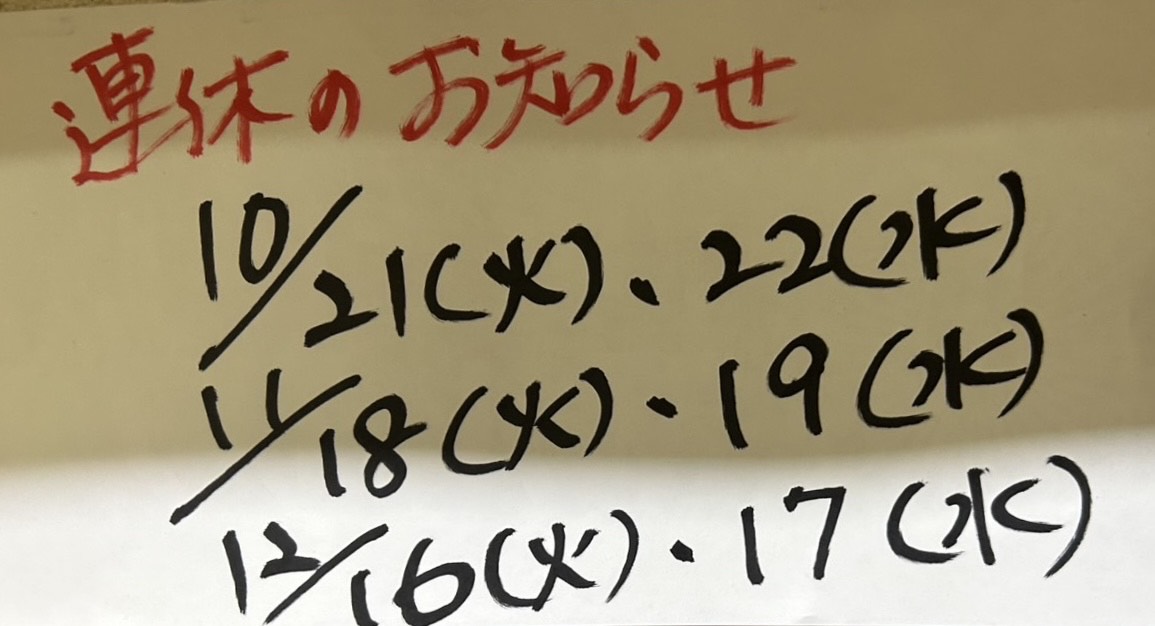 連休のお知らせ
10/21(火)・22(水)
11/18(火)・19(水)
12/16(火)・17(水)